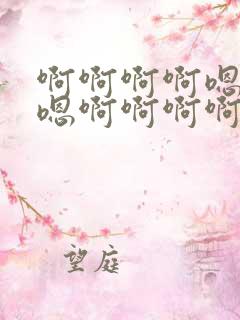 啊啊啊啊嗯
嗯啊啊啊啊
望庭